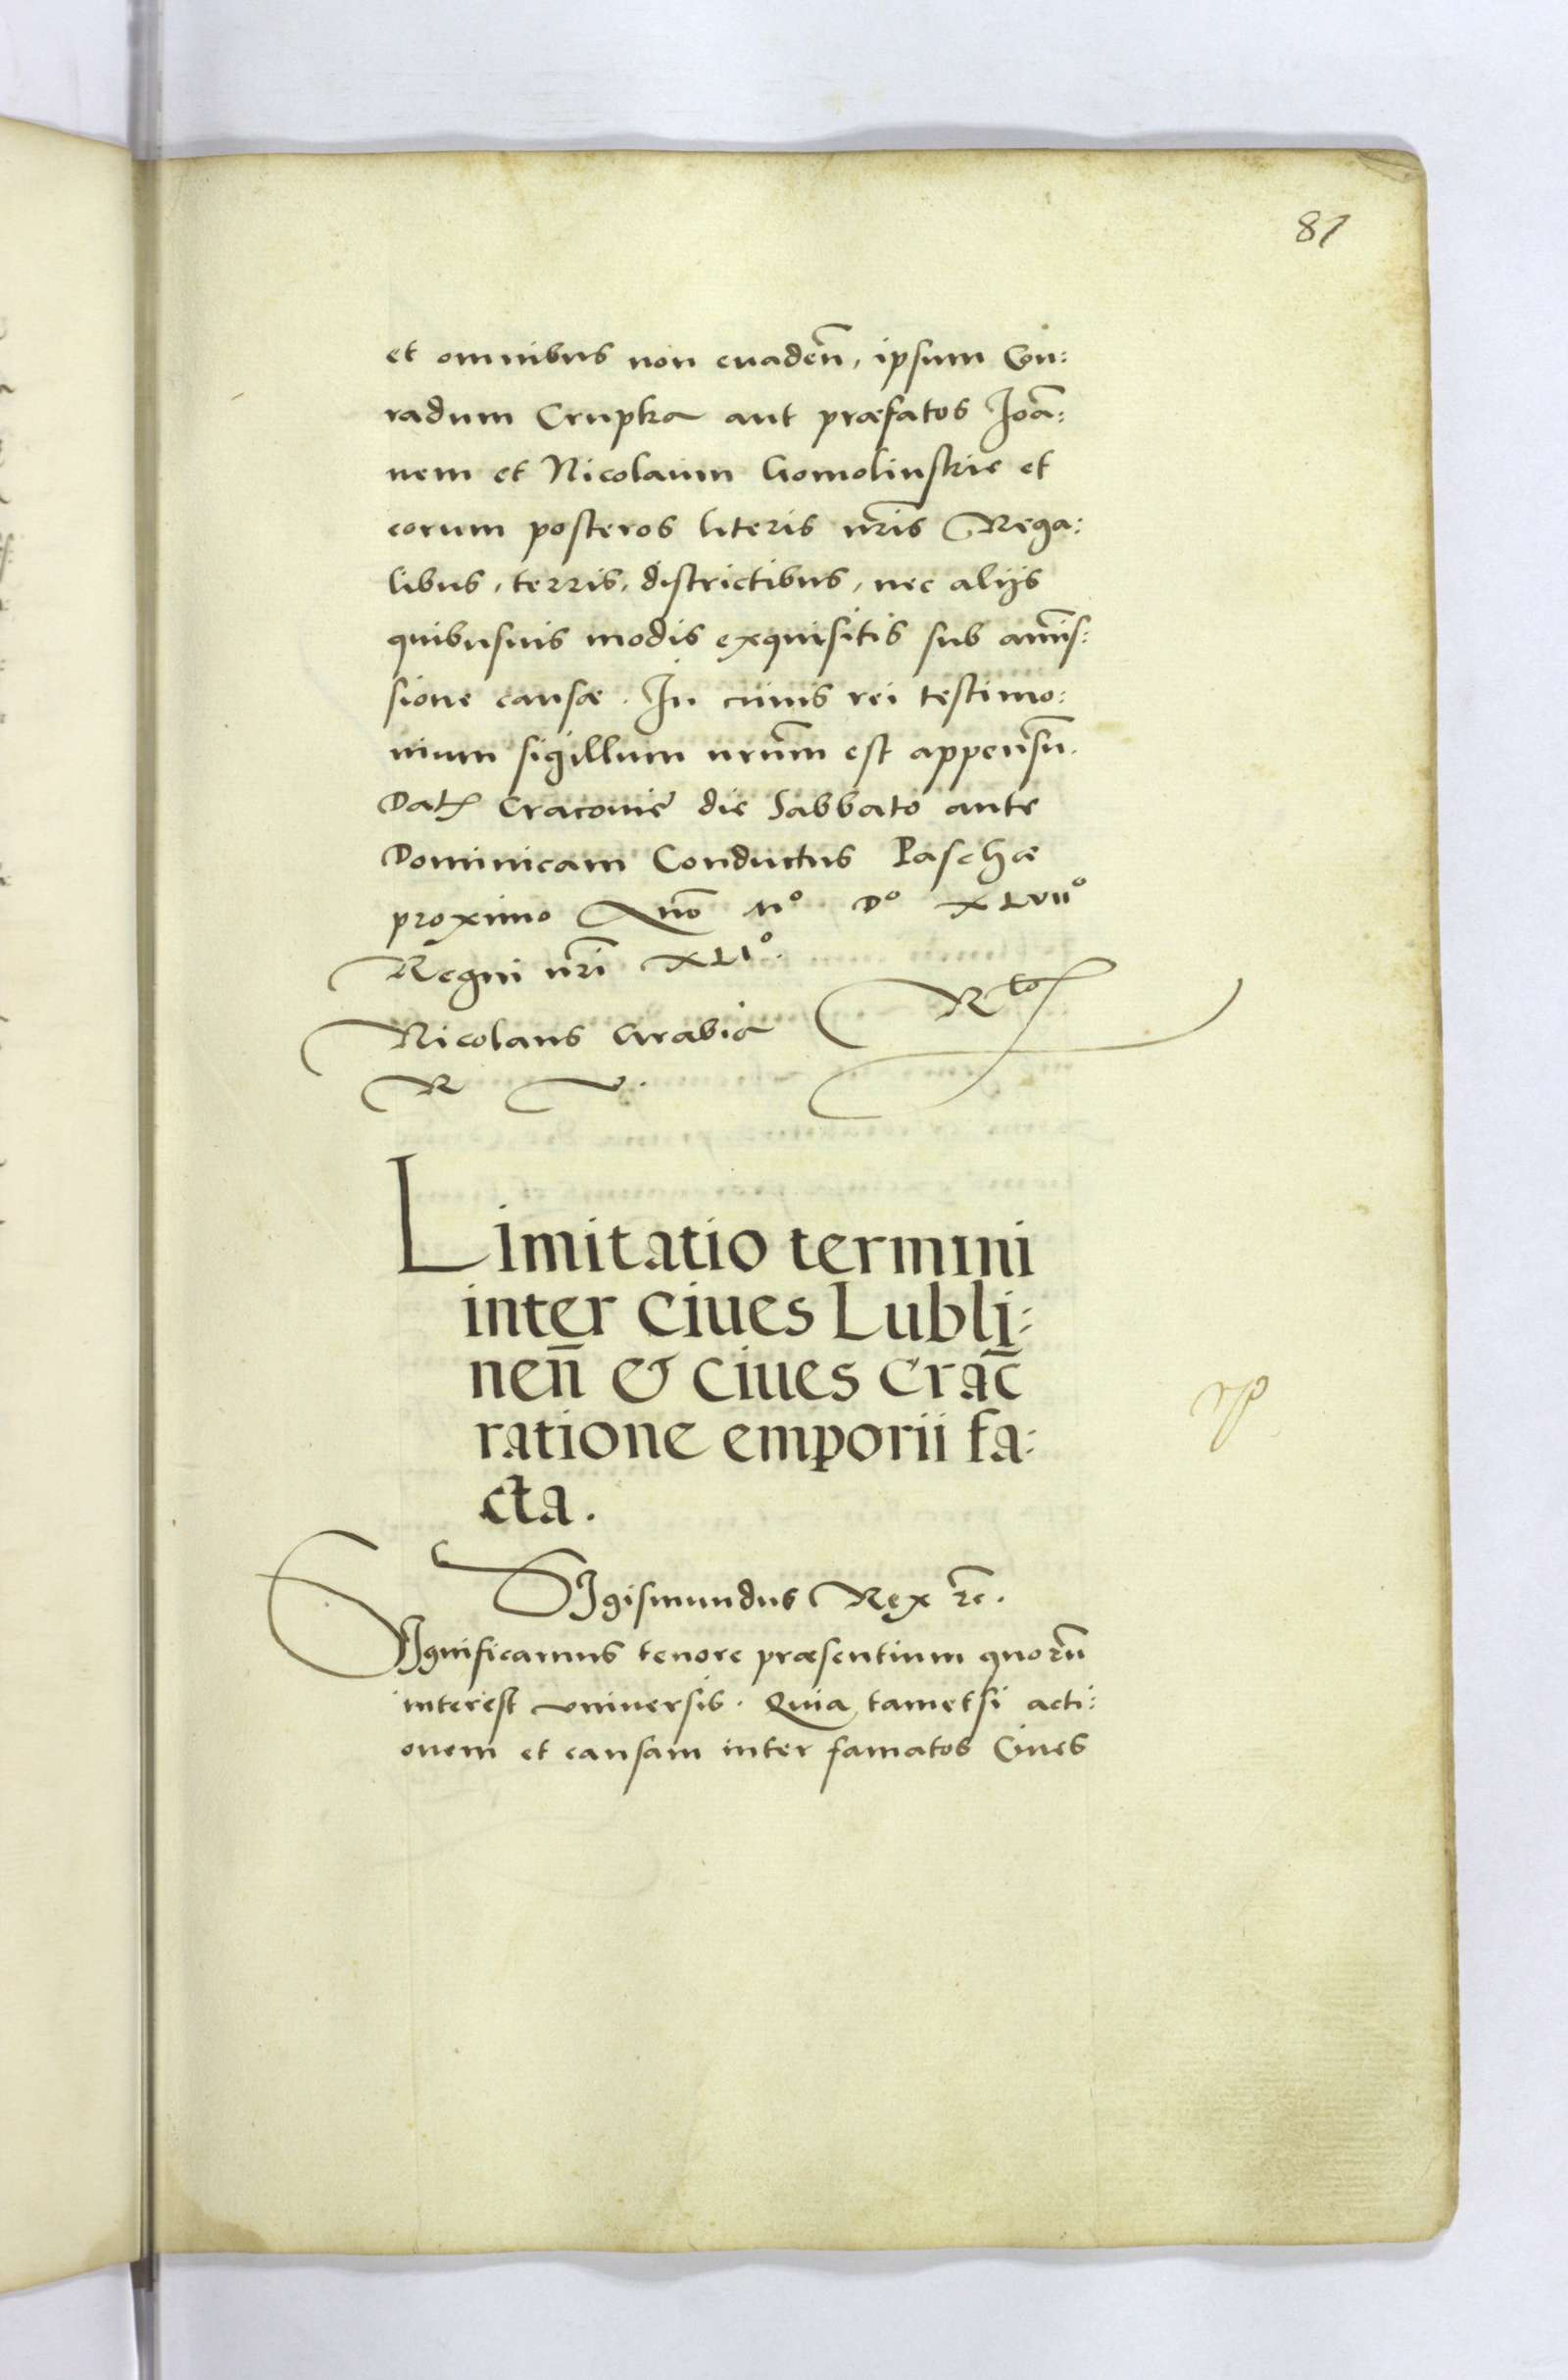 81
et omnibus non euadeñ, ipsum Con:
radum Crupka aut præfatos Joã:
nem et Nicolaum Gomolinskie et
eorum posteros literis nr̃is Rega:
libus, terris, districtibus, nec alijs
quibusuis modis exquisitis sub amis̃:
sione causæ. In cuius rei testimo:
nium sigillum nrũm est appensũ.
Dat Cracouię die Sabbato ante
Dominicam Conductus Paschæ
proximo Año Mº Dº XLVIIº
Regni nr̃i XLIº.
Nicolaus Grabia Rto
R V.
Limitatio termini
inter ciues Lubli:
neñ & ciues crac̃
ratione emporii fa:
cta.
Sigismundus Rex rc̃.
Significamus tenore præsentium quorũ
interest vniuersis. Quia tametsi acti:
onem et causam inter famatos Ciues